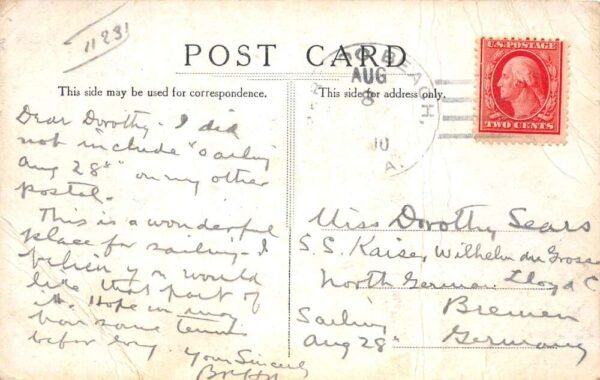 11231
POST CARD
This side may be used for correspondence.
This side for address only.
U.S. POSTAGE
TWO CENTS
BEACH,
AUG
8
10
A.
Dear Dorothy - I did
not include "sailing
Aug 28th" on my other
postal.
This is a wonderful
place for sailing - I
believe you would
like that part of
it. Hope in
have some tennis
before long.
Yours Sincerely
Miss Dorothy Sears
S.S. Kaiser Wilhelm der Grosse
North German Lloyd C
Bremen
Germany
Sailing
Aug 28th